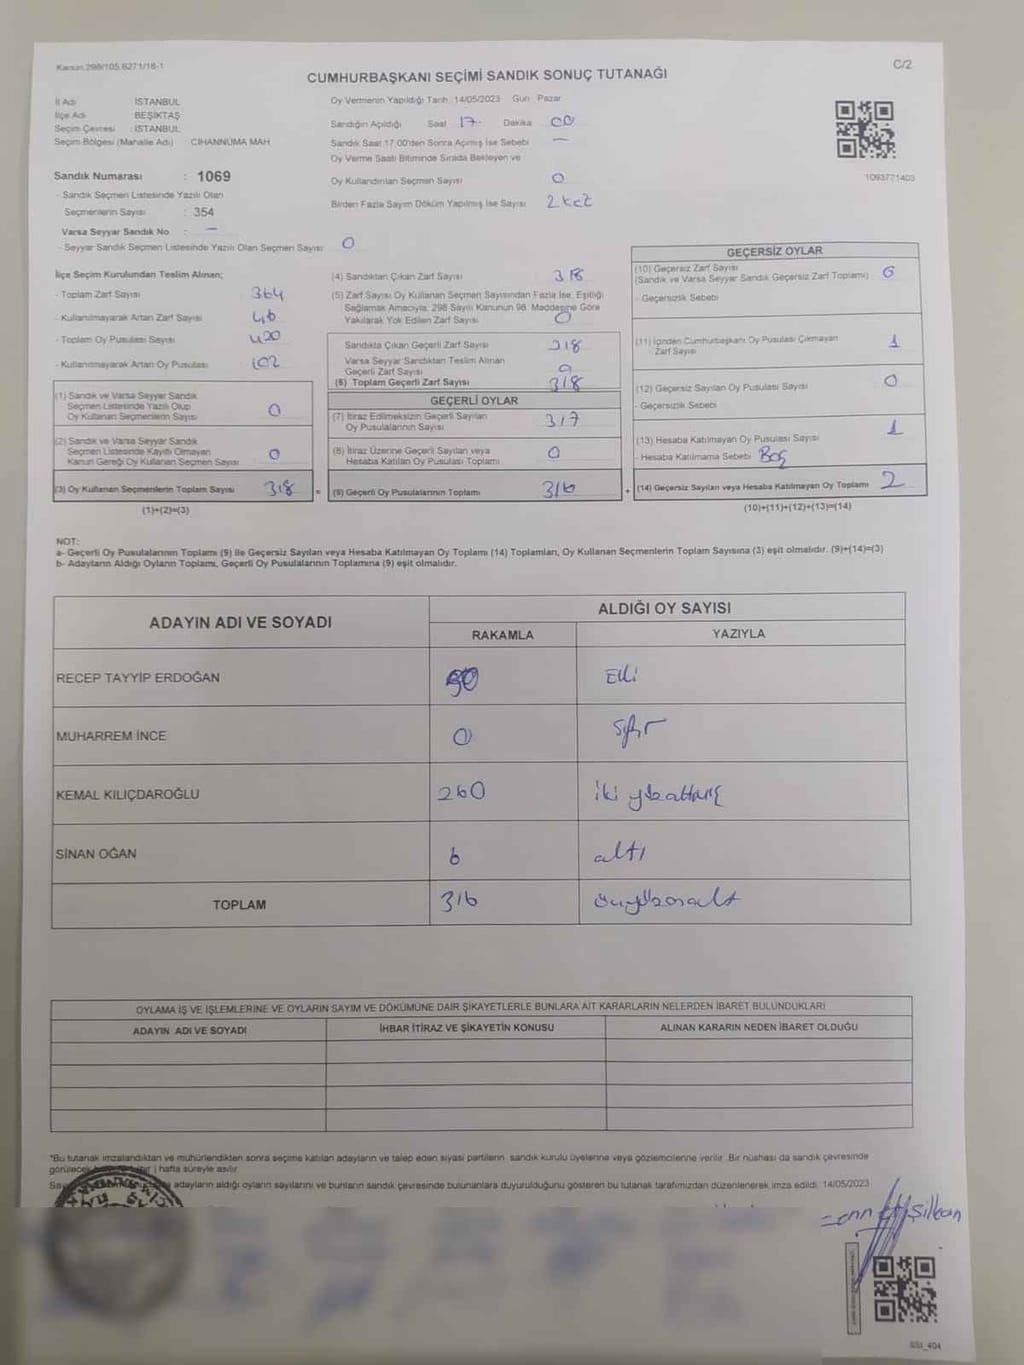 Kanun:298/105.6271/18-1
C/2
CUMHURBAŞKANI SEÇİMİ SANDIK SONUÇ TUTANAĞI
İl Adı İSTANBUL
İlçe Adı BEŞİKTAŞ
Seçim Çevresi : İSTANBUL
Seçim Bölgesi (Mahalle Adı) CIHANNUMA MAH
Oy Vermenin Yapıldığı Tarih 14/05/2023 Gün Pazar
Sandığın Açıldığı Saat 17 Dakika 00
Sandık Saat 17.00'den Sonra Açılmış İse Sebebi —
Oy Verme Saati Bitiminde Sırada Bekleyen ve
Oy Kullandırılan Seçmen Sayısı 0
Birden Fazla Sayım Döküm Yapılmış İse Sayısı 2 kez
1093771403
Sandık Numarası : 1069
- Sandık Seçmen Listesinde Yazılı Olan
Seçmenlerin Sayısı : 354
Varsa Seyyar Sandık No : —
- Seyyar Sandık Seçmen Listesinde Yazılı Olan Seçmen Sayısı: 0
İlçe Seçim Kurulundan Teslim Alınan;
- Toplam Zarf Sayısı 364
- Kullanılmayarak Artan Zarf Sayısı 46
- Toplam Oy Pusulası Sayısı 420
- Kullanılmayarak Artan Oy Pusulası 102
(1) Sandık ve Varsa Seyyar Sandık
Seçmen Listesinde Yazılı Olup
Oy Kullanan Seçmenlerin Sayısı 0
(2) Sandık ve Varsa Seyyar Sandık
Seçmen Listesinde Kayıtlı Olmayan
Kanun Gereği Oy Kullanan Seçmen Sayısı 0
(3) Oy Kullanan Seçmenlerin Toplam Sayısı 318
(1)+(2)=(3)
(4) Sandıktan Çıkan Zarf Sayısı 318
(5) Zarf Sayısı Oy Kullanan Seçmen Sayısından Fazla İse, Eşitliği
Sağlamak Amacıyla, 298 Sayılı Kanunun 98. Maddesine Göre
Yakılarak Yok Edilen Zarf Sayısı 0
Sandıkta Çıkan Geçerli Zarf Sayısı 318
Varsa Seyyar Sandıktan Teslim Alınan
Geçerli Zarf Sayısı 0
(6) Toplam Geçerli Zarf Sayısı 318
GEÇERLİ OYLAR
(7) İtiraz Edilmeksizin Geçerli Sayılan
Oy Pusulalarının Sayısı 317
(8) İtiraz Üzerine Geçerli Sayılan veya
Hesaba Katılan Oy Pusulası Toplamı 0
= (9) Geçerli Oy Pusulalarının Toplamı 316
GEÇERSİZ OYLAR
(10) Geçersiz Zarf Sayısı
(Sandık ve Varsa Seyyar Sandık Geçersiz Zarf Toplamı) 0
- Geçersizlik Sebebi
(11) İçinden Cumhurbaşkanı Oy Pusulası Çıkmayan
Zarf Sayısı 1
(12) Geçersiz Sayılan Oy Pusulası Sayısı 0
- Geçersizlik Sebebi
(13) Hesaba Katılmayan Oy Pusulası Sayısı 1
- Hesaba Katılmama Sebebi Boş
+ (14) Geçersiz Sayılan veya Hesaba Katılmayan Oy Toplamı 2
(10)+(11)+(12)+(13)=(14)
NOT:
a- Geçerli Oy Pusulalarının Toplamı (9) ile Geçersiz Sayılan veya Hesaba Katılmayan Oy Toplamı (14) Toplamları, Oy Kullanan Seçmenlerin Toplam Sayısına (3) eşit olmalıdır. (9)+(14)=(3)
b- Adayların Aldığı Oyların Toplamı, Geçerli Oy Pusulalarının Toplamına (9) eşit olmalıdır.
ADAYIN ADI VE SOYADI
ALDIĞI OY SAYISI
RAKAMLA YAZIYLA
RECEP TAYYİP ERDOĞAN 50 Elli
MUHARREM İNCE 0 Sıfır
KEMAL KILIÇDAROĞLU 260 iki yüzaltmış
SİNAN OĞAN 6 altı
TOPLAM 316 üçyüzonaltı
OYLAMA İŞ VE İŞLEMLERİNE VE OYLARIN SAYIM VE DÖKÜMÜNE DAİR ŞİKAYETLERLE BUNLARA AİT KARARLARIN NELERDEN İBARET BULUNDUKLARI
ADAYIN ADI VE SOYADI İHBAR İTİRAZ VE ŞİKAYETİN KONUSU ALINAN KARARIN NEDEN İBARET OLDUĞU
*Bu tutanak imzalandıktan ve mühürlendikten sonra seçime katılan adayların ve talep eden siyasi partilerin sandık kurulu üyelerine veya gözlemcilerine verilir. Bir nüshası da sandık çevresinde
görülecek bir hafta süreyle asılır.
adayların aldığı oyların sayılarını ve bunların sandık çevresinde bulunanlara duyurulduğunu gösteren bu tutanak tarafımızdan düzenlenerek imza edildi. 14/05/2023
SSI_404